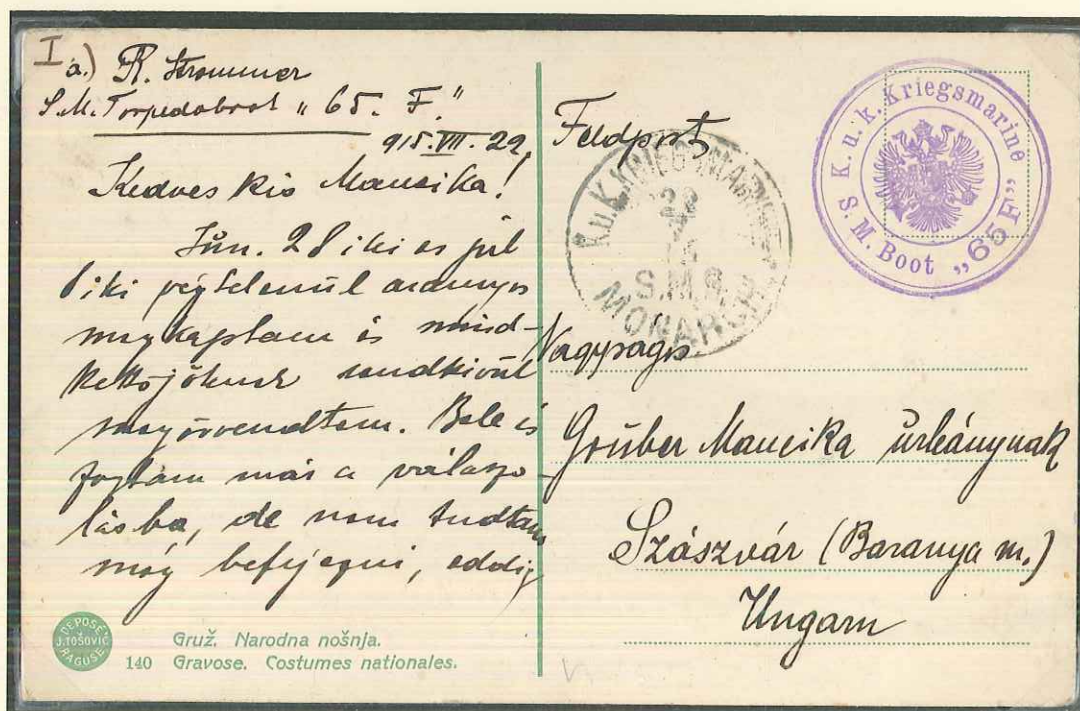 I a.) R. Strommer
S.M. Torpedoboot "65. F."
915.VII.22.
Kedves kis Mancika!
Jún. 28 iki és júl
6 iki végtelenül aranyos
megkaptam és mind-
kettőjöknek rendkívül
megörvendtem. Bele is
fogtam már a válaszo-
lásba, de nem tudtam
még befejezni, eddig
DEPOSÉ
J. TOŠOVIĆ
RAGUSE
Gruž. Narodna nošnja.
140 Gravose. Costumes nationales.
Feldpost
K.u.K. KRIEGSMARINE
S.M.S.
MONARCH
S. K. u. k. Kriegsmarine
S. M. Boot „65 F"
Nagyságs.
Gruber Mancika úrleánynak
Szászvár (Baranya m.)
Ungarn